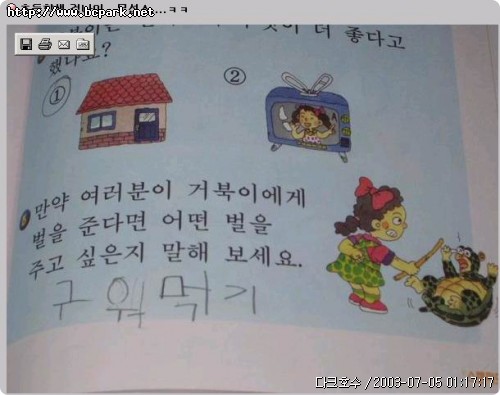 http://www.bcpark.net
더 좋다고
했나요?
①
②
만약 여러분이 거북이에게
벌을 준다면 어떤 벌을
주고 싶은지 말해 보세요.
구워먹기
다크호수 / 2003-07-05 01:17:17